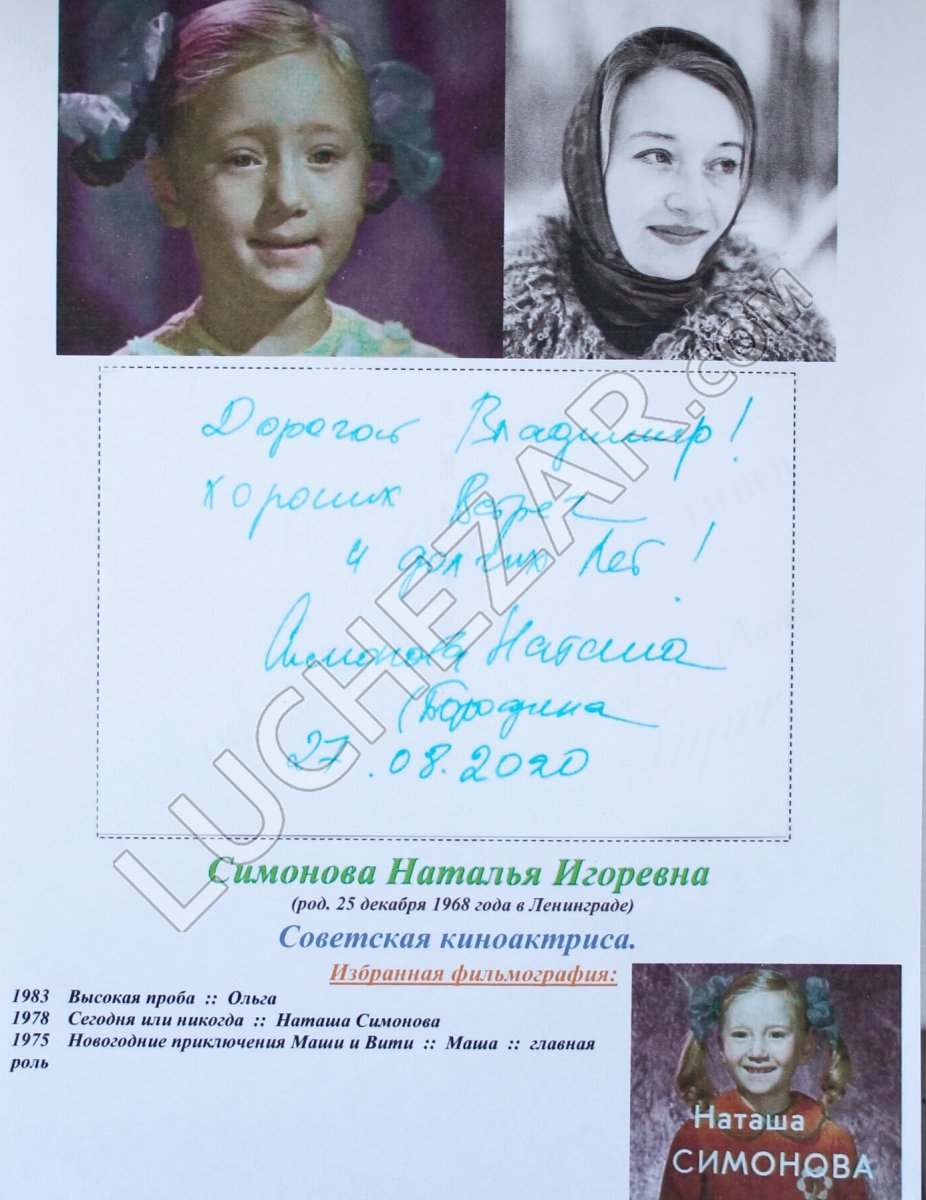 Дорогой Владимир!
Хороших встреч
и долгих лет!
Симонова Наташа
(Бородина
27.08.2020
LUCHEZAR.COM
Симонова Наталья Игоревна
(род. 25 декабря 1968 года в Ленинграде)
Советская киноактриса.
Избранная фильмография:
1983 Высокая проба :: Ольга
1978 Сегодня или никогда :: Наташа Симонова
1975 Новогодние приключения Маши и Вити :: Маша :: главная
роль
Наташа
СИМОНОВА